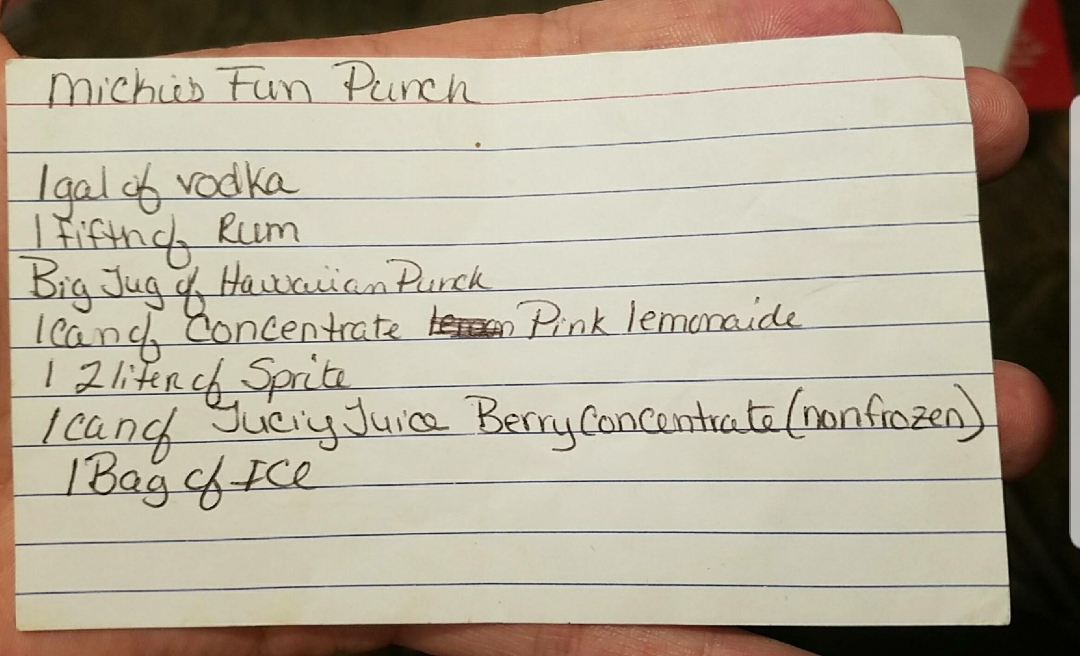 Michies Fun Punch
1 gal of vodka
1 Fifth of Rum
Big Jug of Hawaiian Punch
1 Can of Concentrate Pink lemonaide
1 2 liter of Sprite
1 can of Juciy Juice Berry Concentrate (nonfrozen)
1 Bag of ICe